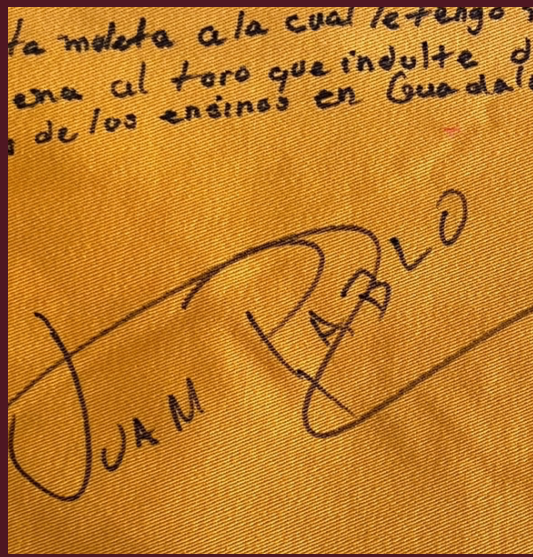 ta moleta a la cual le tengo
ena al toro que indulte d
s de los ensinos en Guadala
JUAM PABLO